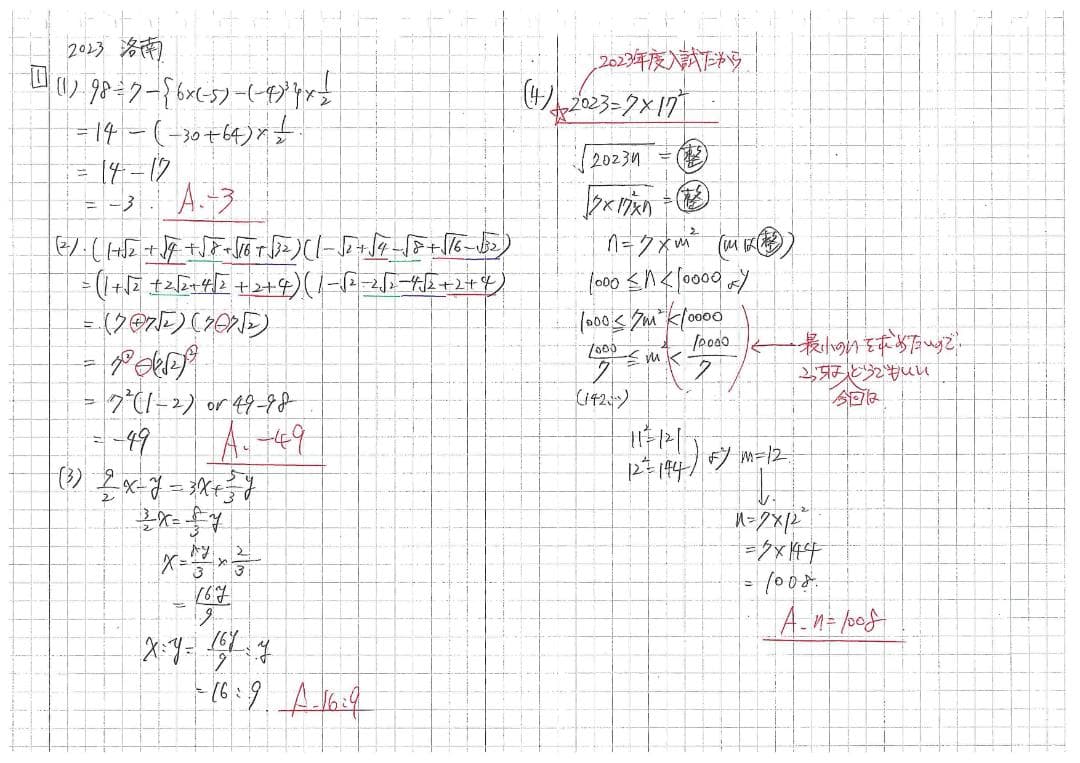 2023 洛南
1
(1) 98÷7-{6×(-5)-(-4)³}×1/2
=14-(-30+64)×1/2
=14-17
=-3. A.-3
(2).(1+√2+√4+√8+√16+√32)(1-√2+√4-√8+√16-√32)
=(1+√2+2√2+4√2+2+4)(1-√2-2√2-4√2+2+4)
=(7+7√2)(7-7√2)
=7²-(7√2)²
=7²(1-2) or 49-98
=-49 A.-49
(3) 9/2x-y=3x+5/3y
3/2x=8/3y
x=8y/3×2/3
=16y/9
x:y=16y/9:y
=16:9. A.16:9
2023年度入試だから
(4) ☆2023=7×17²
√2023n=整
√7×17²×n=整
n=7×m² (mは整)
1000≦n<10000より
1000≦7m²<10000
1000/7≦m²<10000/7 ← 最小のnを求めたいので
こっちはどうでもいい
今回は
(142...)
11²=121
12²=144)より m=12
↓
n=7×12²
=7×144
=1008.
A.n=1008